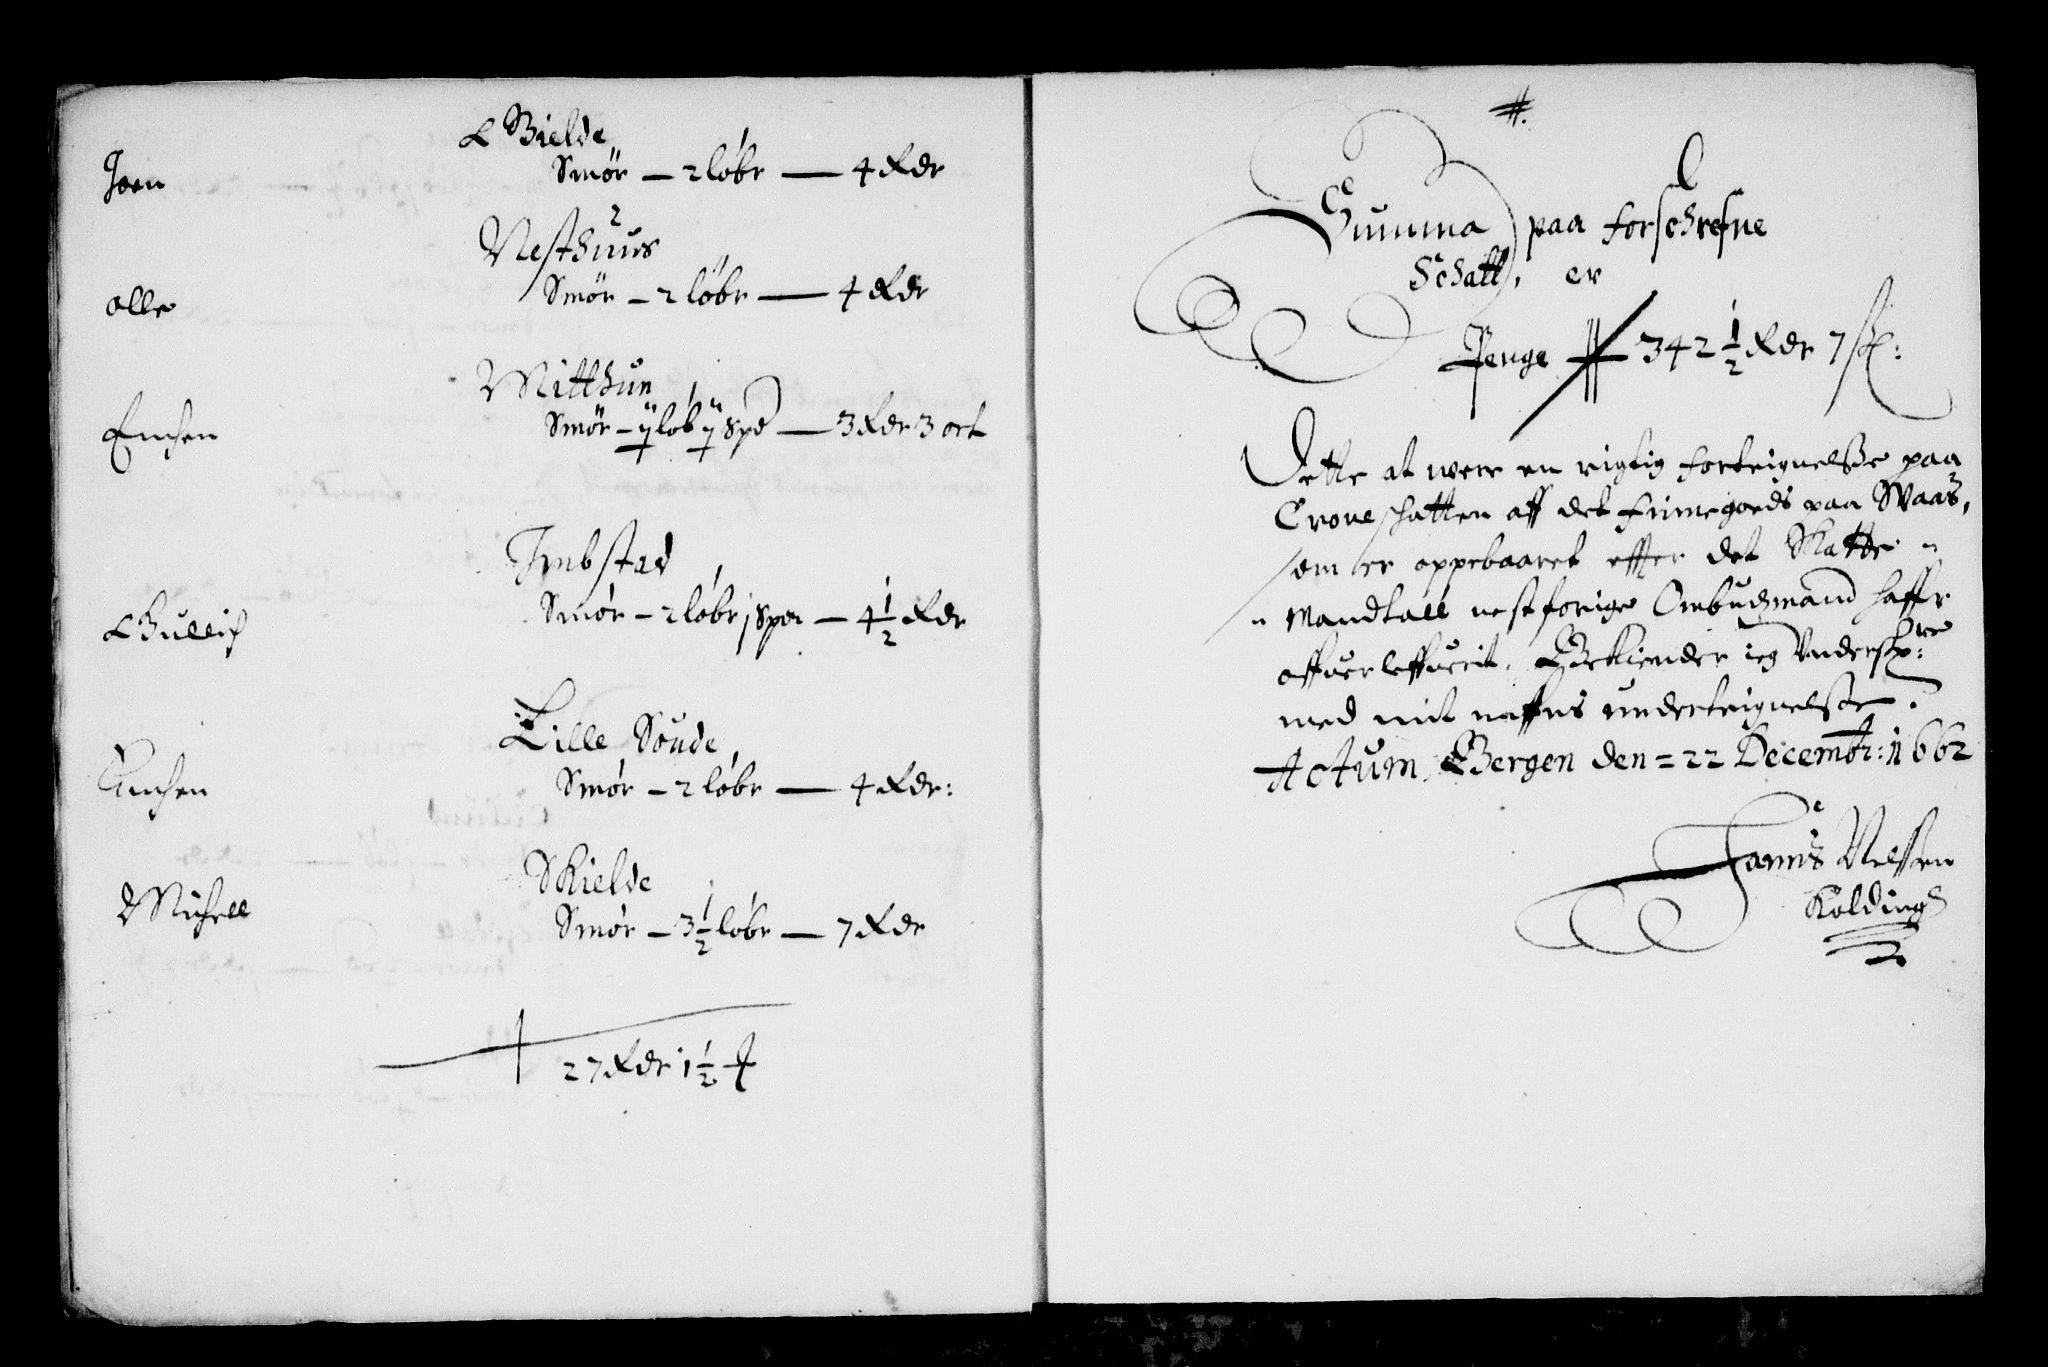 Bielde
Joen Smör – 2 löbr — 4 Rdr
Nesthuus
Olle Smör – 2 löbr — 4 Rdr
Mitthun
Smör – ÿ löb ÿ Spd — 3 Rdr 3 ort
Jmbstad
Smör – 2 löbr j Spn – 4 1/2 Rdr
Lille Soude
Smör – 2 löbr — 4 Rdr:
Skielde
Michell Smör – 3 1/2 löbr — 7 Rdr
27 Rdr 1 1/2 #
#.
Summa paa forschrefne
Schatt, er
Penge # 342 1/2 Rdr 7 sk:
Dette at were en rigtig forteignelsse paa
Croneschatten aff det Finnegoeds paa Waas,
som er oppebaaret effter det Skatte
Mandtall nestforige Ombudzmand haffr
offuerleffuerit, Bekiender ieg Undersk:re
med mit naffns underteignelsse.
Actum Bergen den = 22 Decembr: 1662
Hanns Nelssen
Kolding